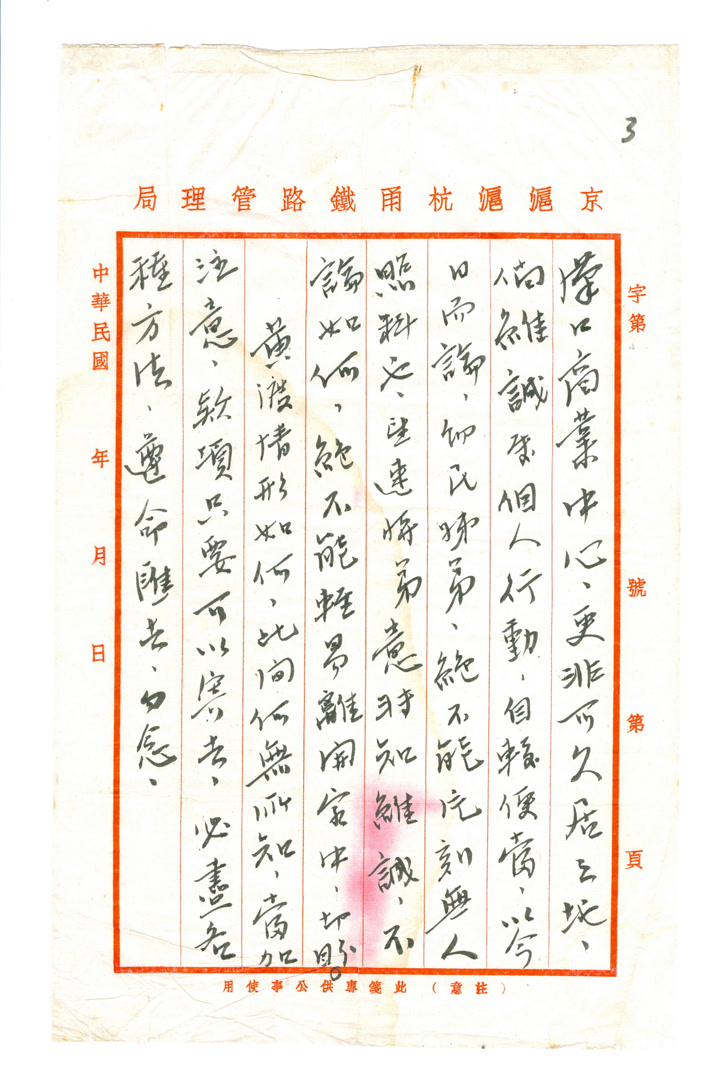 3
京滬滬杭甬鐵路管理局
字第
號
第
頁
漢口商業中心、更非可久居之地、
倘維誠系個人行動、自較便當、以今
日而論、幼民姊弟、絕不能片刻無人
照料也、望速將弟意轉知維誠、不
論如何、絕不能輕易離開家中、切盼。
黃渡情形如何、此間仍無所知、當加
注意、款項只要可以寄去、必盡各
種方法、遵命匯去、勿念、
中華民國 年 月 日
（註意）此箋專供公事使用